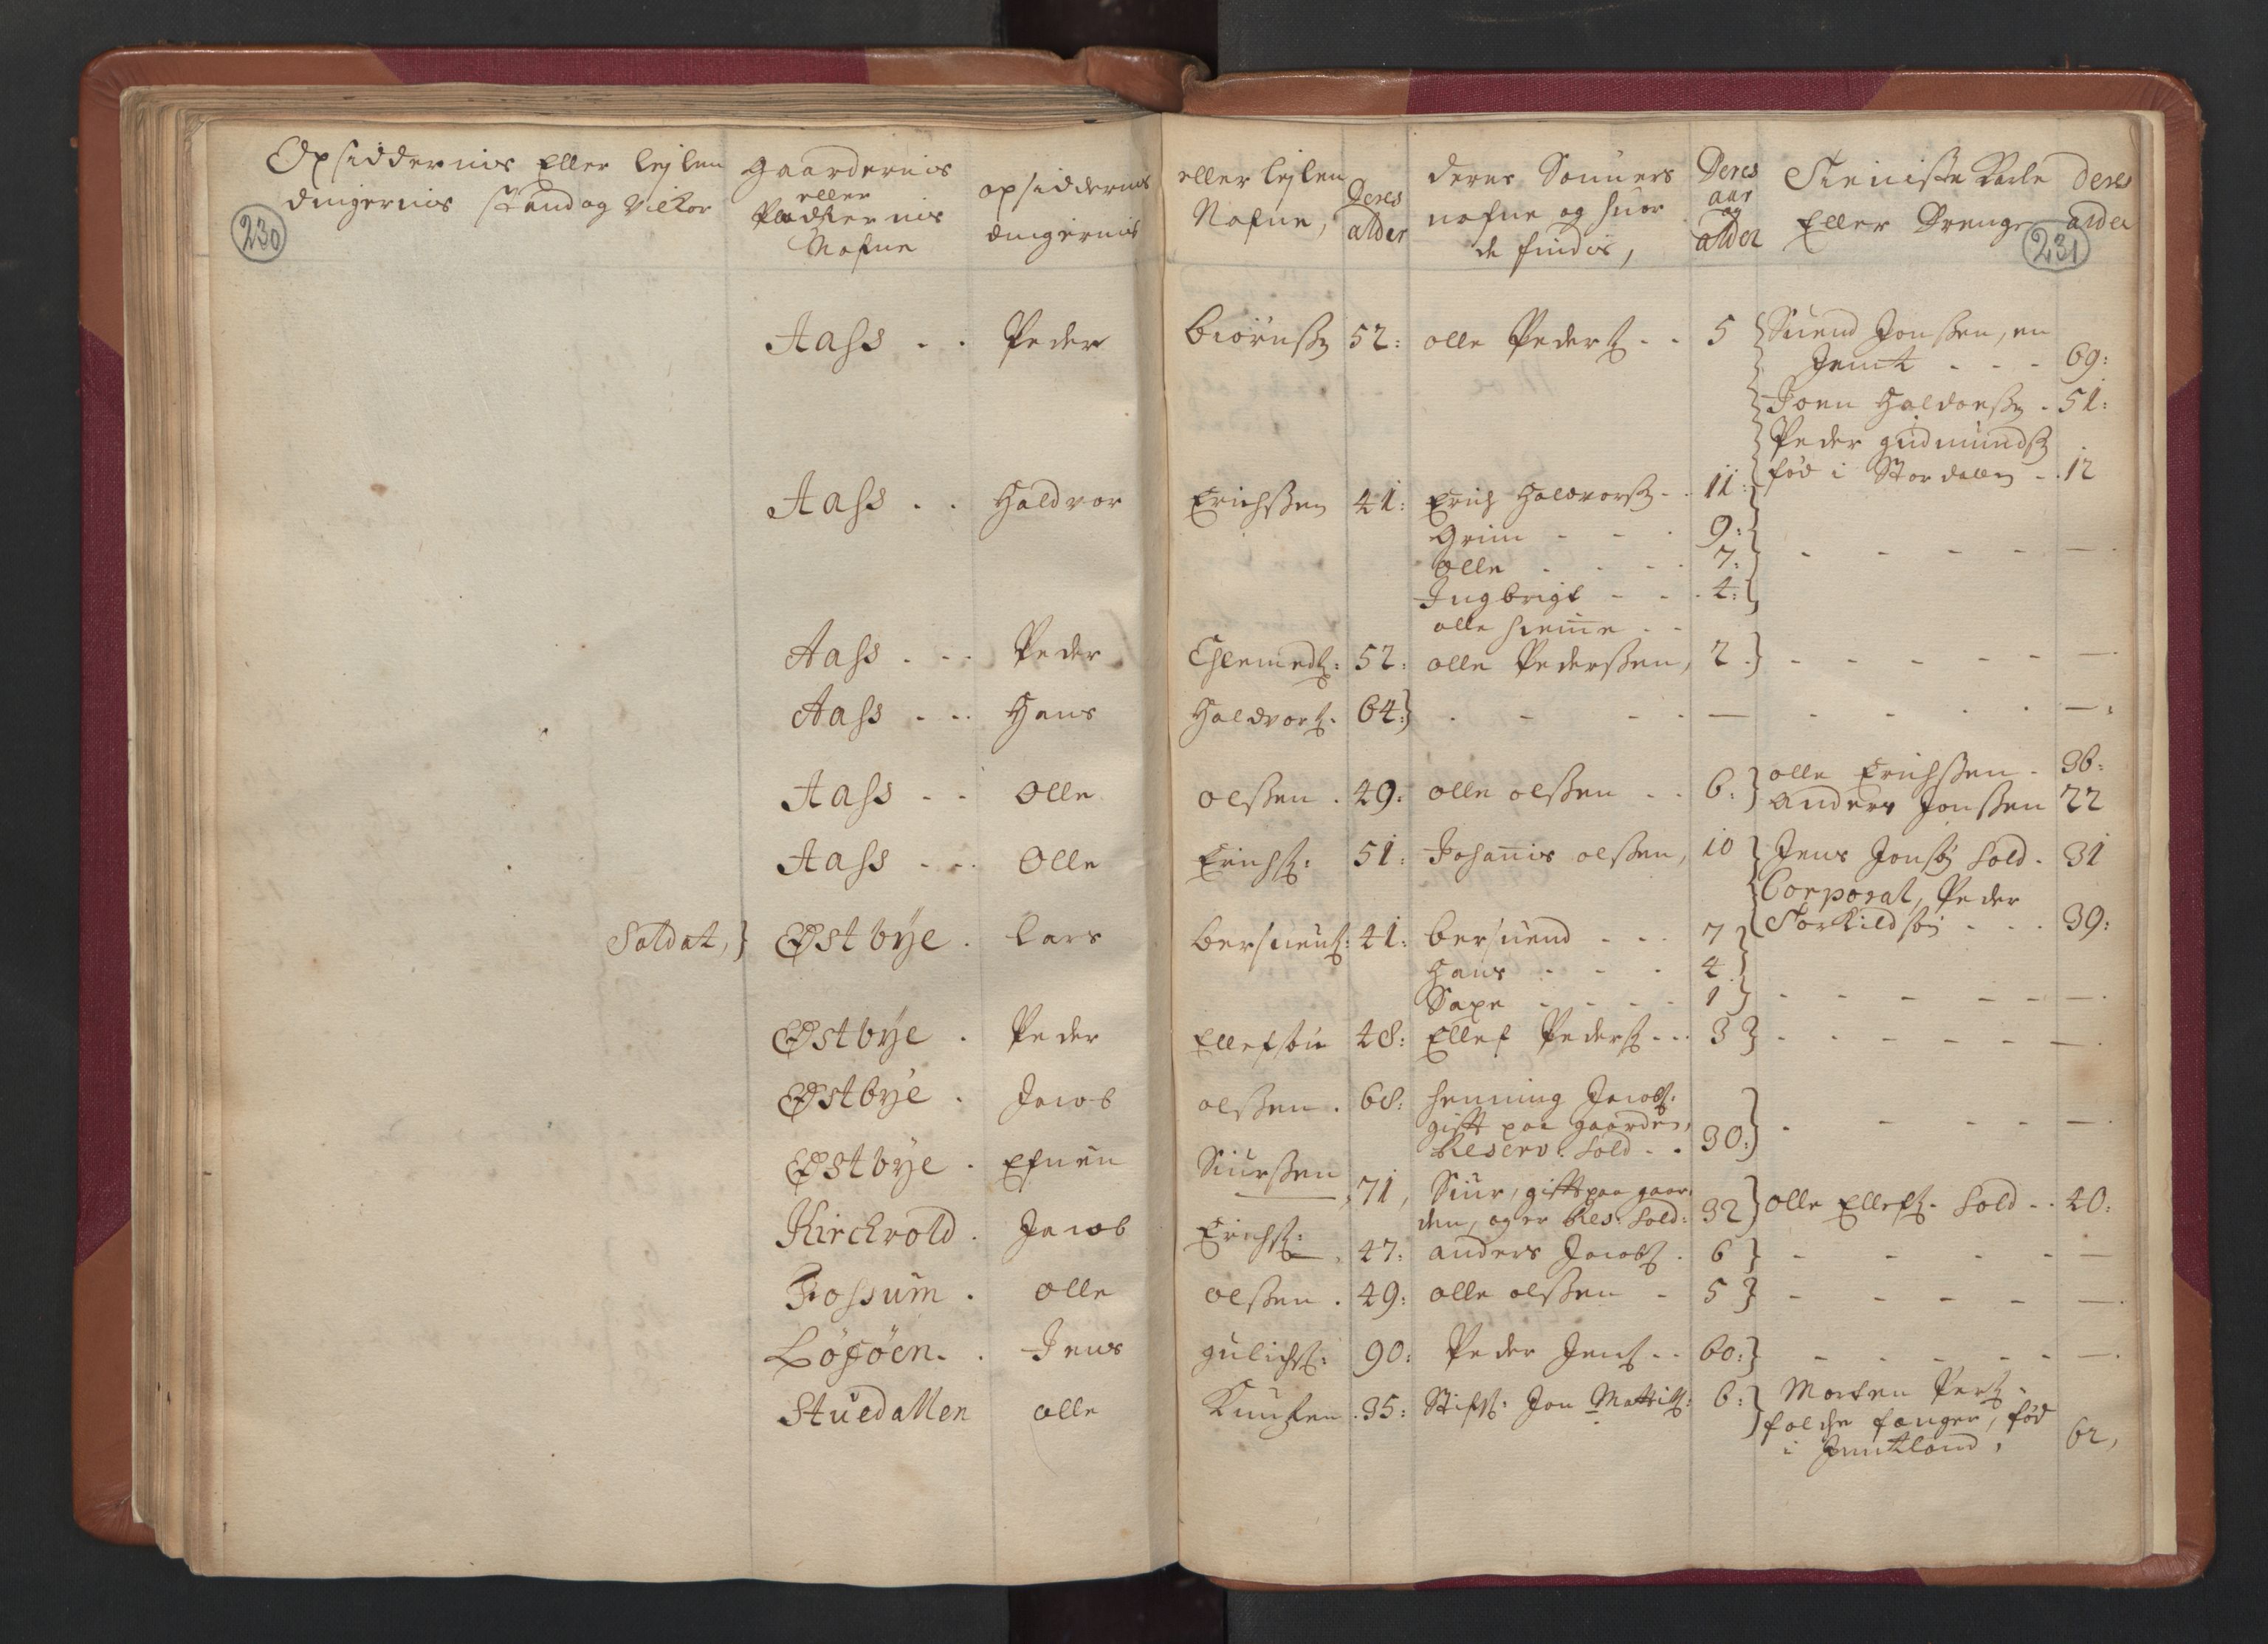 Opsiddernis Eller Lejlen
dingernis stand og Vilkor
230
Gaardernis
eller
Pladzernis
Nafne
opsiddernis
dingernis
eller Lejlen
Nafne,
Deres
alder
deres Sønners
nafne og huor
de findis,
Deres
aar
og
alder
Tieniste Karle
Eller Drenge
deres
alder
231
Aass . . Peder Biörnss 52: olle Peders . . 5 Suend Jonssen, en
Jemt - - - 69:
Joen Haldorss . 51:
Peder gudmunds
fód i Stordallen . . 12
Aass . . Haldvor Erichssen 41: Erich Haldvors . . 11:
Grim - - - 9:
Olle - - - 7:
Ingbrigt - - - 4:
olle hiemme - -
Aass . . . Peder Clemeds: 52: olle Pederssen, 2
Aass . . . Hans Haldvors: 64:
Aass . . Olle olssen . 49: olle olssen . . 6: olle Erichssen . 36:
anders Jonssen 22
Aass . . . Olle Erichs: 51: Johannis olssen, 10 Jens Jonsøn sold . 31
Corporal, Peder
Torkildsøn . . . 39:
Soldat, Østbÿe . Lars Bersuens: 41: Bersuend - - - 7
Hans - - - 4
Saxe - - - - 1
Østbÿe . Peder Ellefsøn 48: Ellef Peders . . . 3
Østbÿe . Jacob olssen . 68: henning Jacobs:
gift paa gaarden,
Reserv: sold . . 30:
Østbÿe . Efuen Siurssen 71, Siur, gift paa gaar
den, og er Res: sold: 32 olle Ellefs. sold . . 40:
Kirckvold . Jacob Erichs: 47: anders Jacobs . 6
Fossum . olle olssen . 49: olle olssen - 5
Löföen . . Jens gulichs: 90: Peder Jens . . 60:
Stuedallen olle Knutzen . 35: Stifs: Jon Mattis: 6: Morten Pers.
falche fanger, fód
i Jemtland, 62,